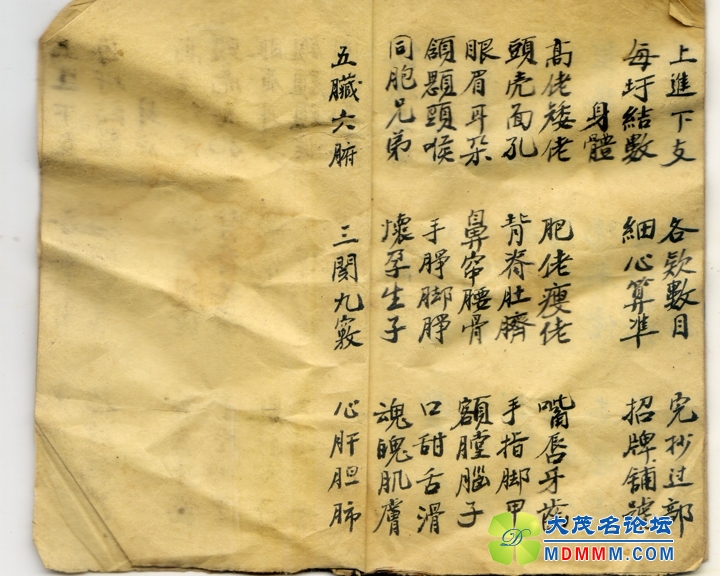 上進下支 各欵數目 完抄过部
每圩結數 細心算準 招牌舖號
身體
高佬矮佬 肥佬瘦佬 嘴唇牙齒
頭壳面孔 背脊肚臍 手指脚甲
眼眉耳朶 鼻帘腰骨 額膛腦子
頷顋頭喉 手睜脚睜 口甜舌滑
同胞兄弟 懷孕生子 魂魄肌膚
五臟六腑 三関九竅 心肝胆肺
大茂名论坛
MDMMM.COM